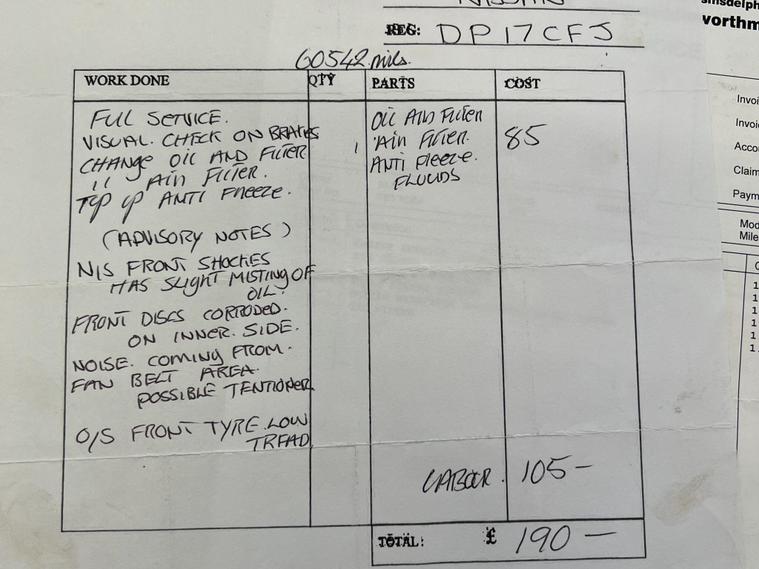 NISSAN
REG: DP17CFJ
60542 mils.
WORK DONE QTY PARTS COST
FULL SERVICE.
VISUAL. CHECK ON BRAKES
CHANGE OIL AND FILTER
11 AIR FILTER.
TOP UP ANTI FREEZE.
1
OIL AND FILTER
AIR FILTER.
ANTI FREEZE.
FLUIDS
85
(ADVISORY NOTES)
N/S FRONT SHOCKES
HAS SLIGHT MISTING OF
OIL.
FRONT DISCS CORRODED.
ON INNER. SIDE.
NOISE. COMING FROM.
FAN BELT AREA.
POSSIBLE TENTIONER
O/S FRONT TYRE LOW
TREAD
LABOUR. 105-
TOTAL: £ 190-
vorthm
Invoi
Invoi
Acco
Claim
Paym
Mod
Mile